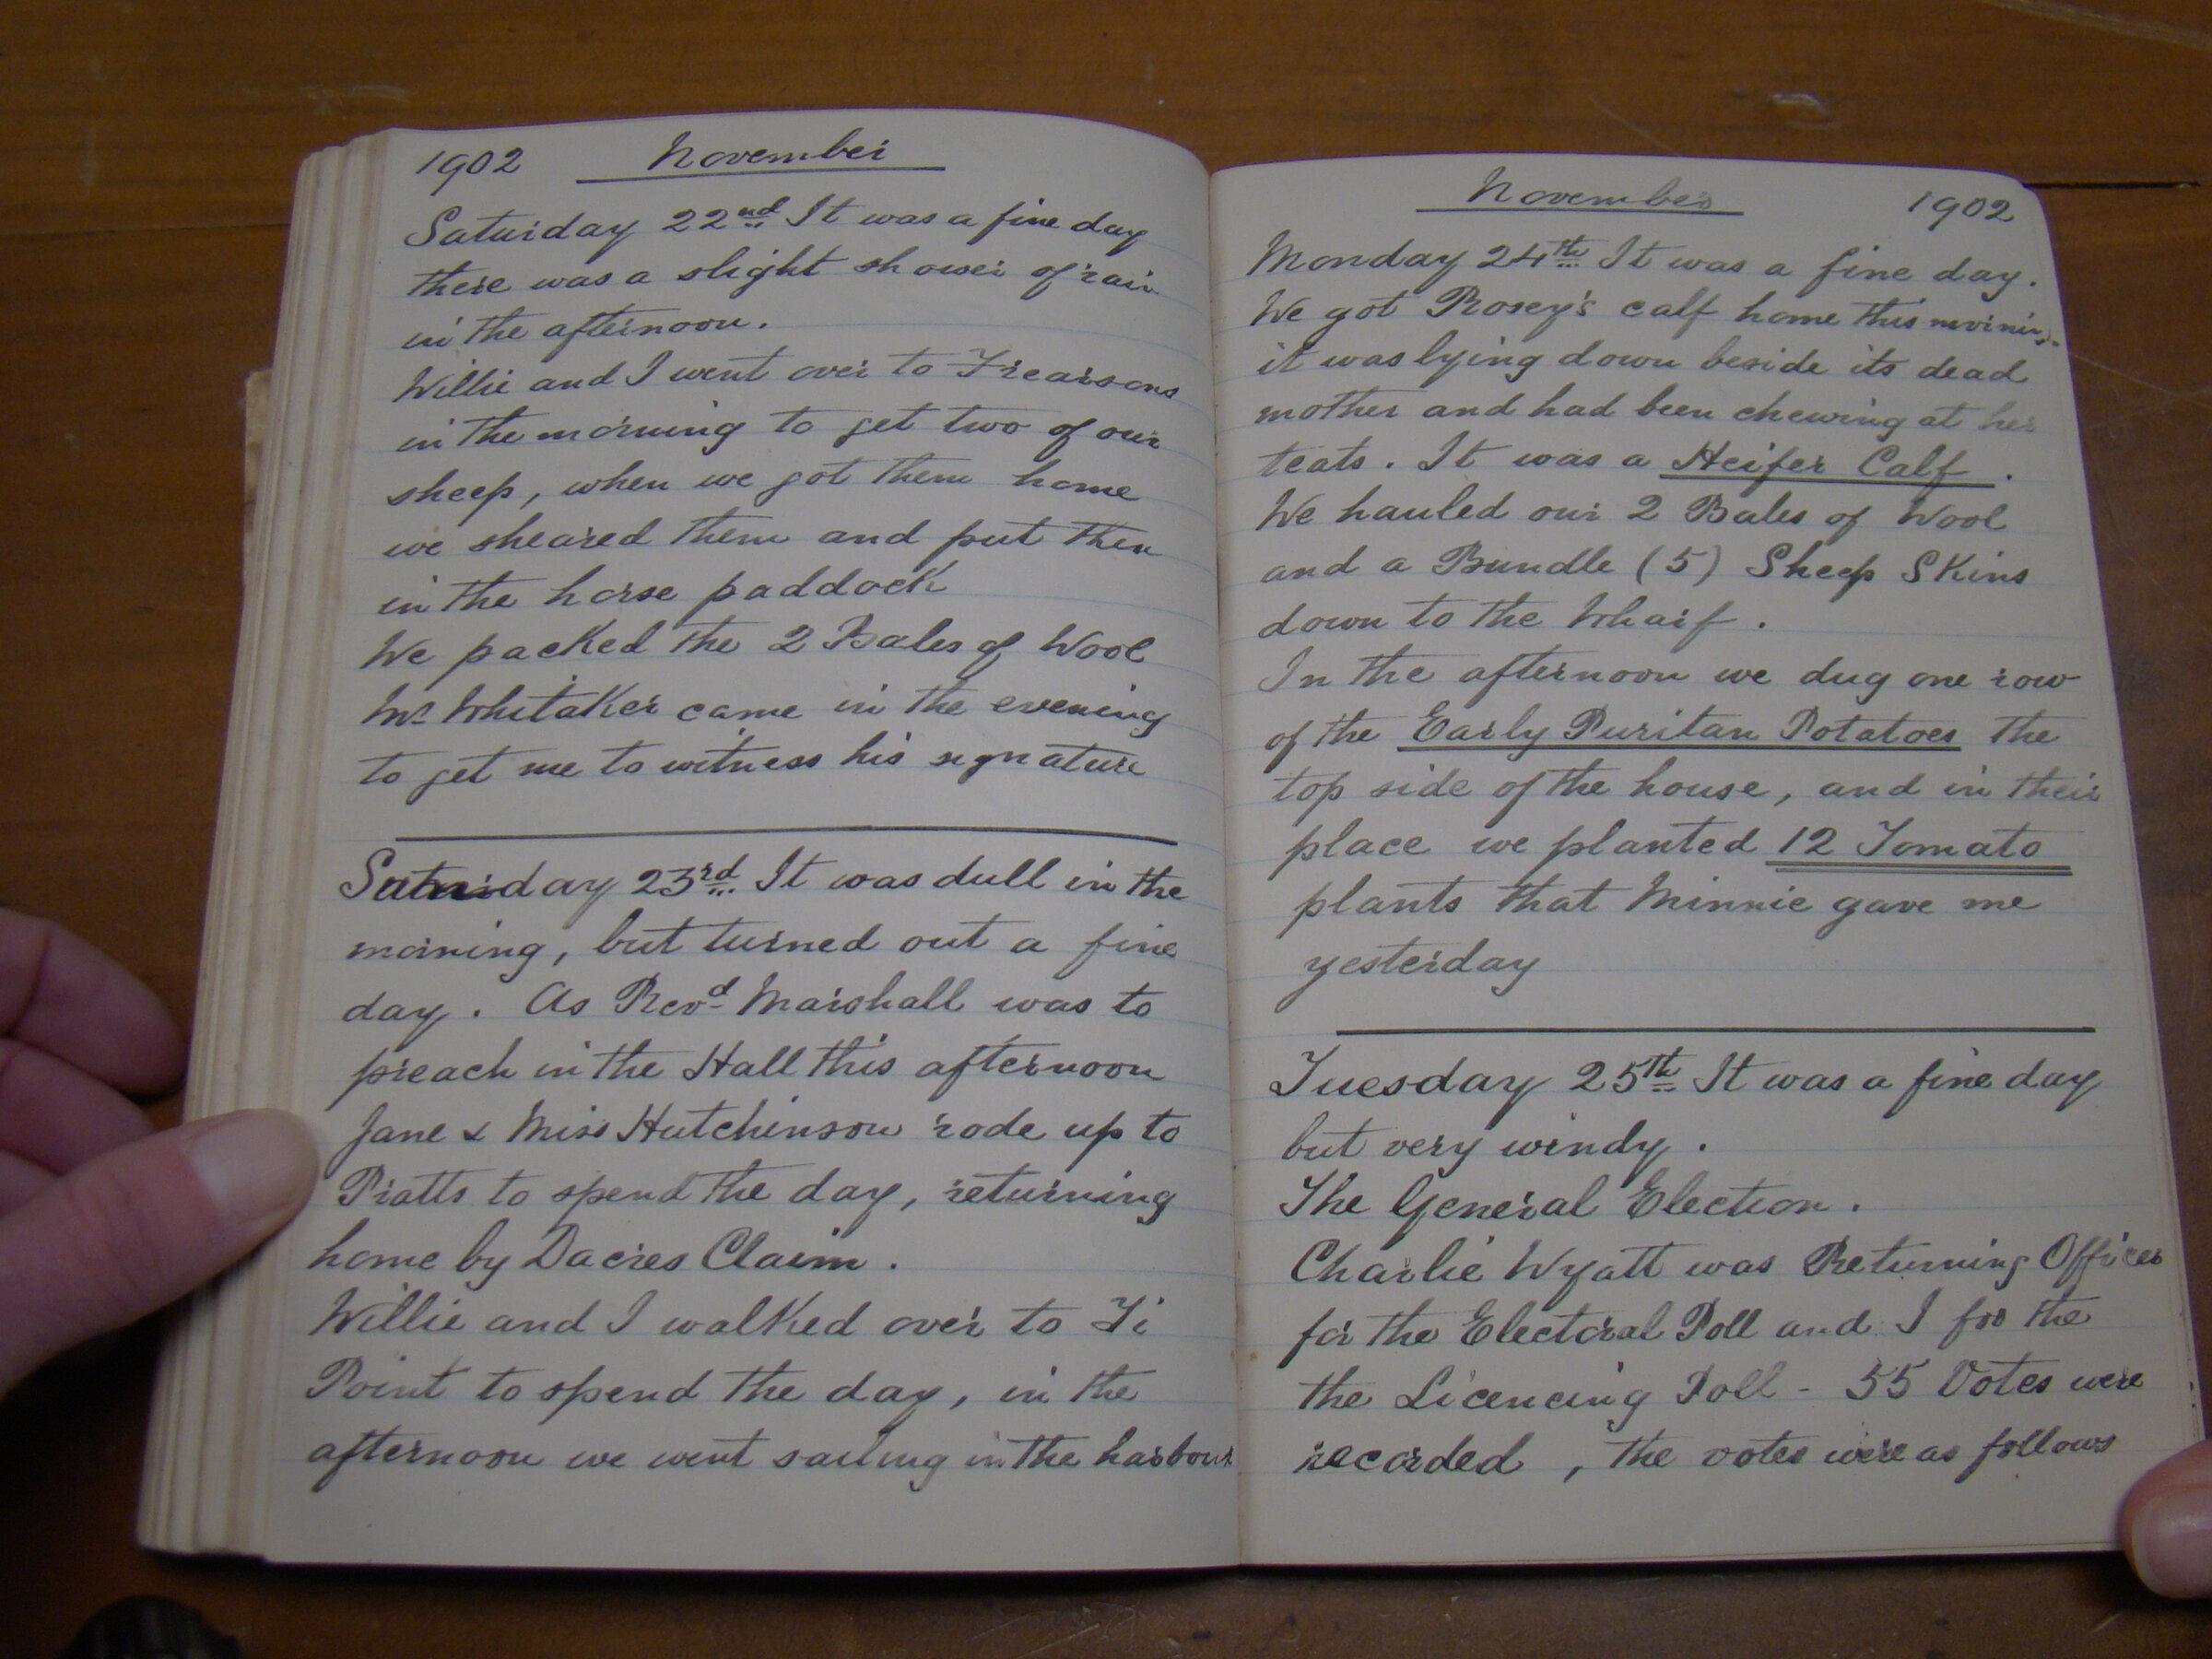 1902 November
Saturday 22nd It was a fine day
there was a slight shower of rain
in the afternoon.
Willie and I went over to Frearsons
in the morning to get two of our
sheep, when we got them home
we sheared them and put them
in the horse paddock
We packed the 2 Bales of Wool
Mr Whitaker came in the evening
to get me to witness his signature
Saturday 23rd It was dull in the
morning, but turned out a fine
day. As Revd Marshall was to
preach in the Hall this afternoon
Jane & Miss Hutchinson rode up to
Pratts to spend the day, returning
home by Dacres Claim.
Willie and I walked over to Ti
Point to spend the day, in the
afternoon we went sailing in the harbour
November 1902
Monday 24th It was a fine day.
We got Rosey's calf home this morning
it was lying down beside its dead
mother and had been chewing at her
teats. It was a Heifer Calf.
We hauled our 2 Bales of Wool
and a Bundle (5) Sheep Skins
down to the Wharf.
In the afternoon we dug one row
of the Early Puritan Potatoes the
top side of the house, and in their
place we planted 12 Tomato
plants that Minnie gave me
yesterday
Tuesday 25th It was a fine day
but very windy.
The General Election.
Charlie Wyatt was Returning Officer
for the Electoral Poll and I for the
the Licencing Poll - 55 Votes were
recorded, the votes were as follows